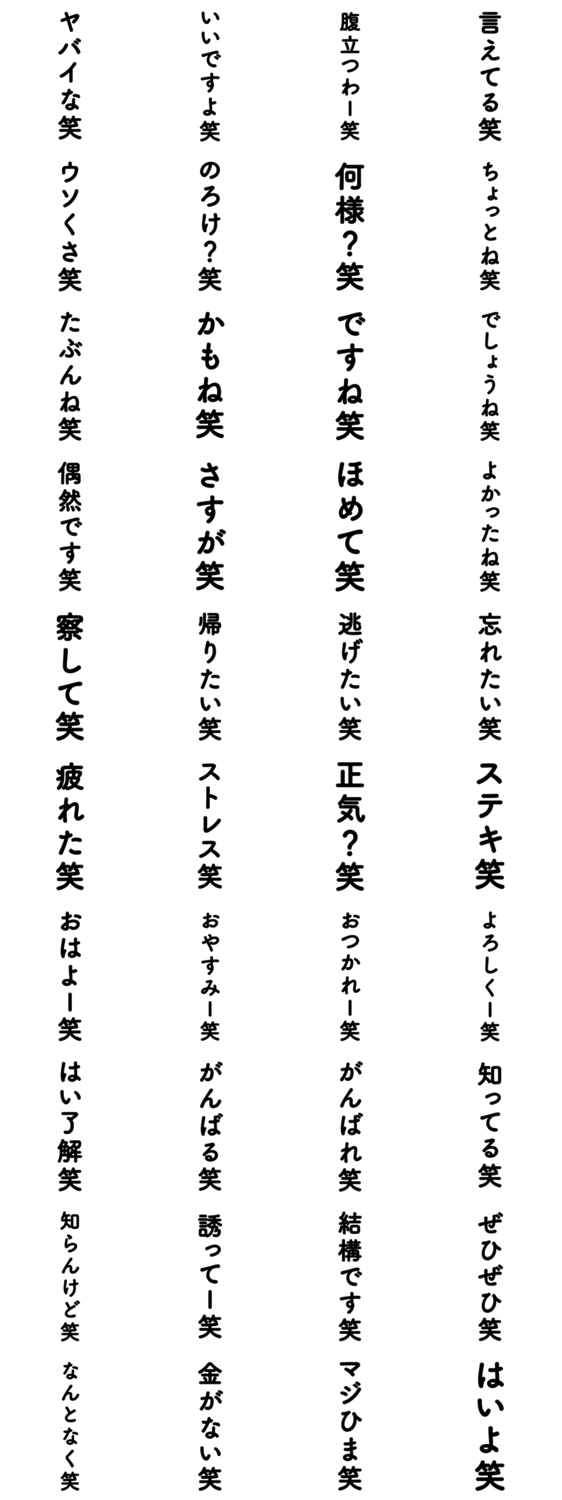 ヤバイな笑
いいですよ笑
腹立つわー笑
言えてる笑
ウソくさ笑
のろけ？笑
何様？笑
ちょっとね笑
たぶんね笑
かもね笑
ですね笑
でしょうね笑
偶然です笑
さすが笑
ほめて笑
よかったね笑
察して笑
帰りたい笑
逃げたい笑
忘れたい笑
疲れた笑
ストレス笑
正気？笑
ステキ笑
おはよー笑
おやすみー笑
おつかれー笑
よろしくー笑
はい了解笑
がんばる笑
がんばれ笑
知ってる笑
知らんけど笑
誘ってー笑
結構です笑
ぜひぜひ笑
なんとなく笑
金がない笑
マジひま笑
はいよ笑